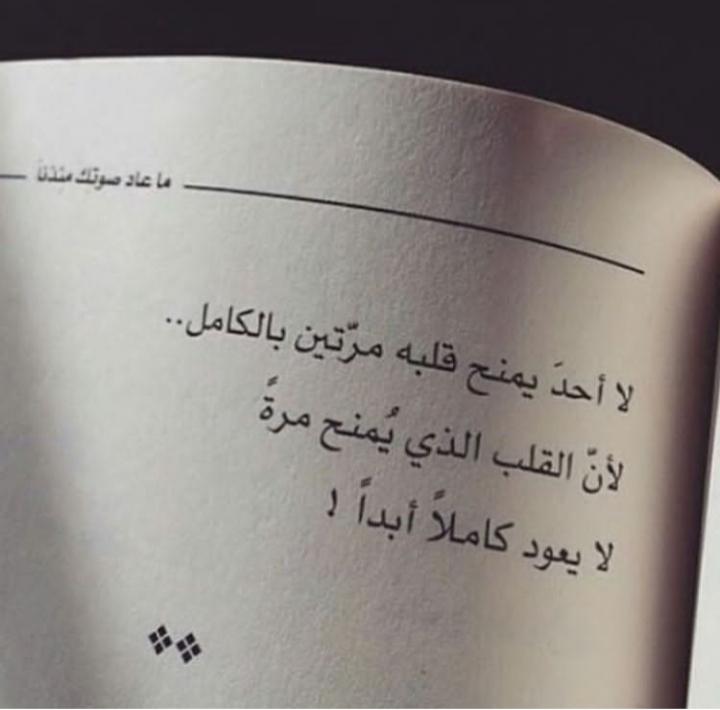 ما عاد صوتك منذنا
لا أحدَ يمنح قلبه مرّتين بالكامل..
لأنّ القلب الذي يُمنح مرةً
لا يعود كاملاً أبداً !